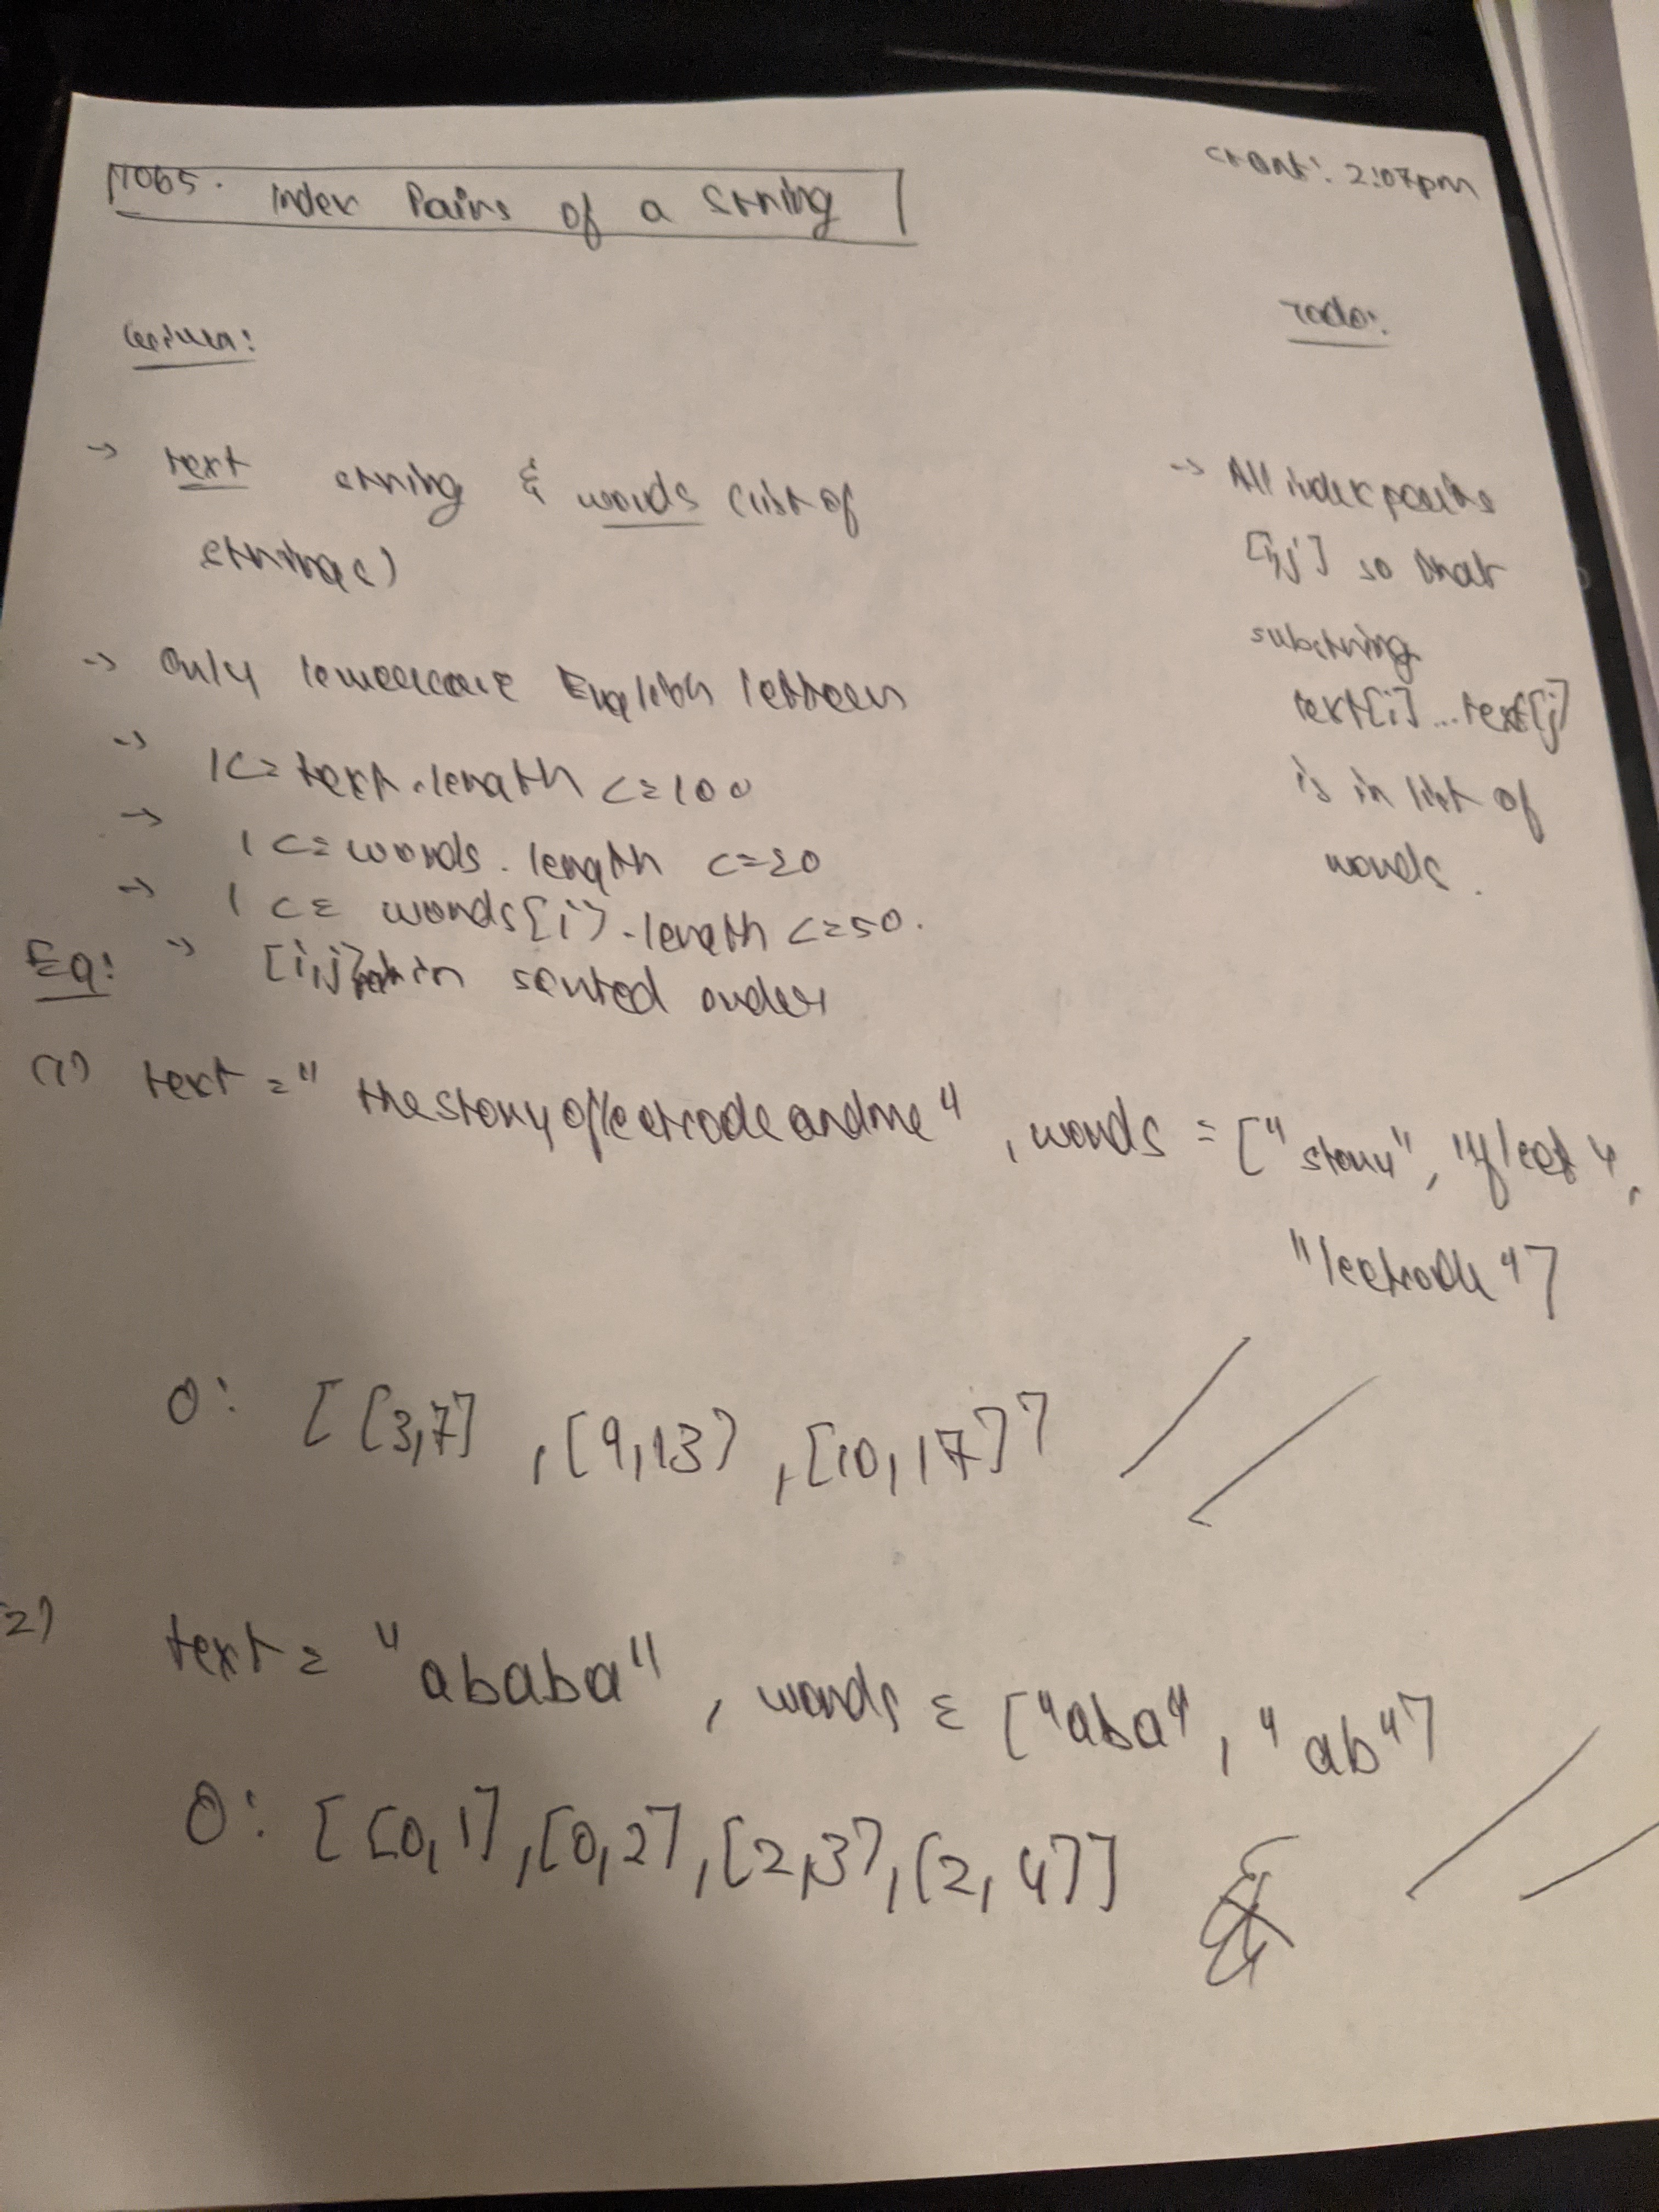 1065. Index Pairs of a String
start: 2:07pm
Given:
→ text string & words (list of
strings)
→ Only lowercase English letters
→ 1<=text.length <=100
→ 1<=words.length <=20
→ 1<= words[i].length <=50.
→ [i,j] in sorted order
Todo:
→ All index pairs
[i,j] so that
substring
text[i]...text[j]
is in list of
words.
Eg:
(1) text = "thestoryofleetcodeandme", words = ["story", "fleet",
"leetcode"]
O: [[3,7],[9,13],[10,17]]
2) text = "ababa", words = ["aba", "ab"]
O: [[0,1],[0,2],[2,3],[2,4]]